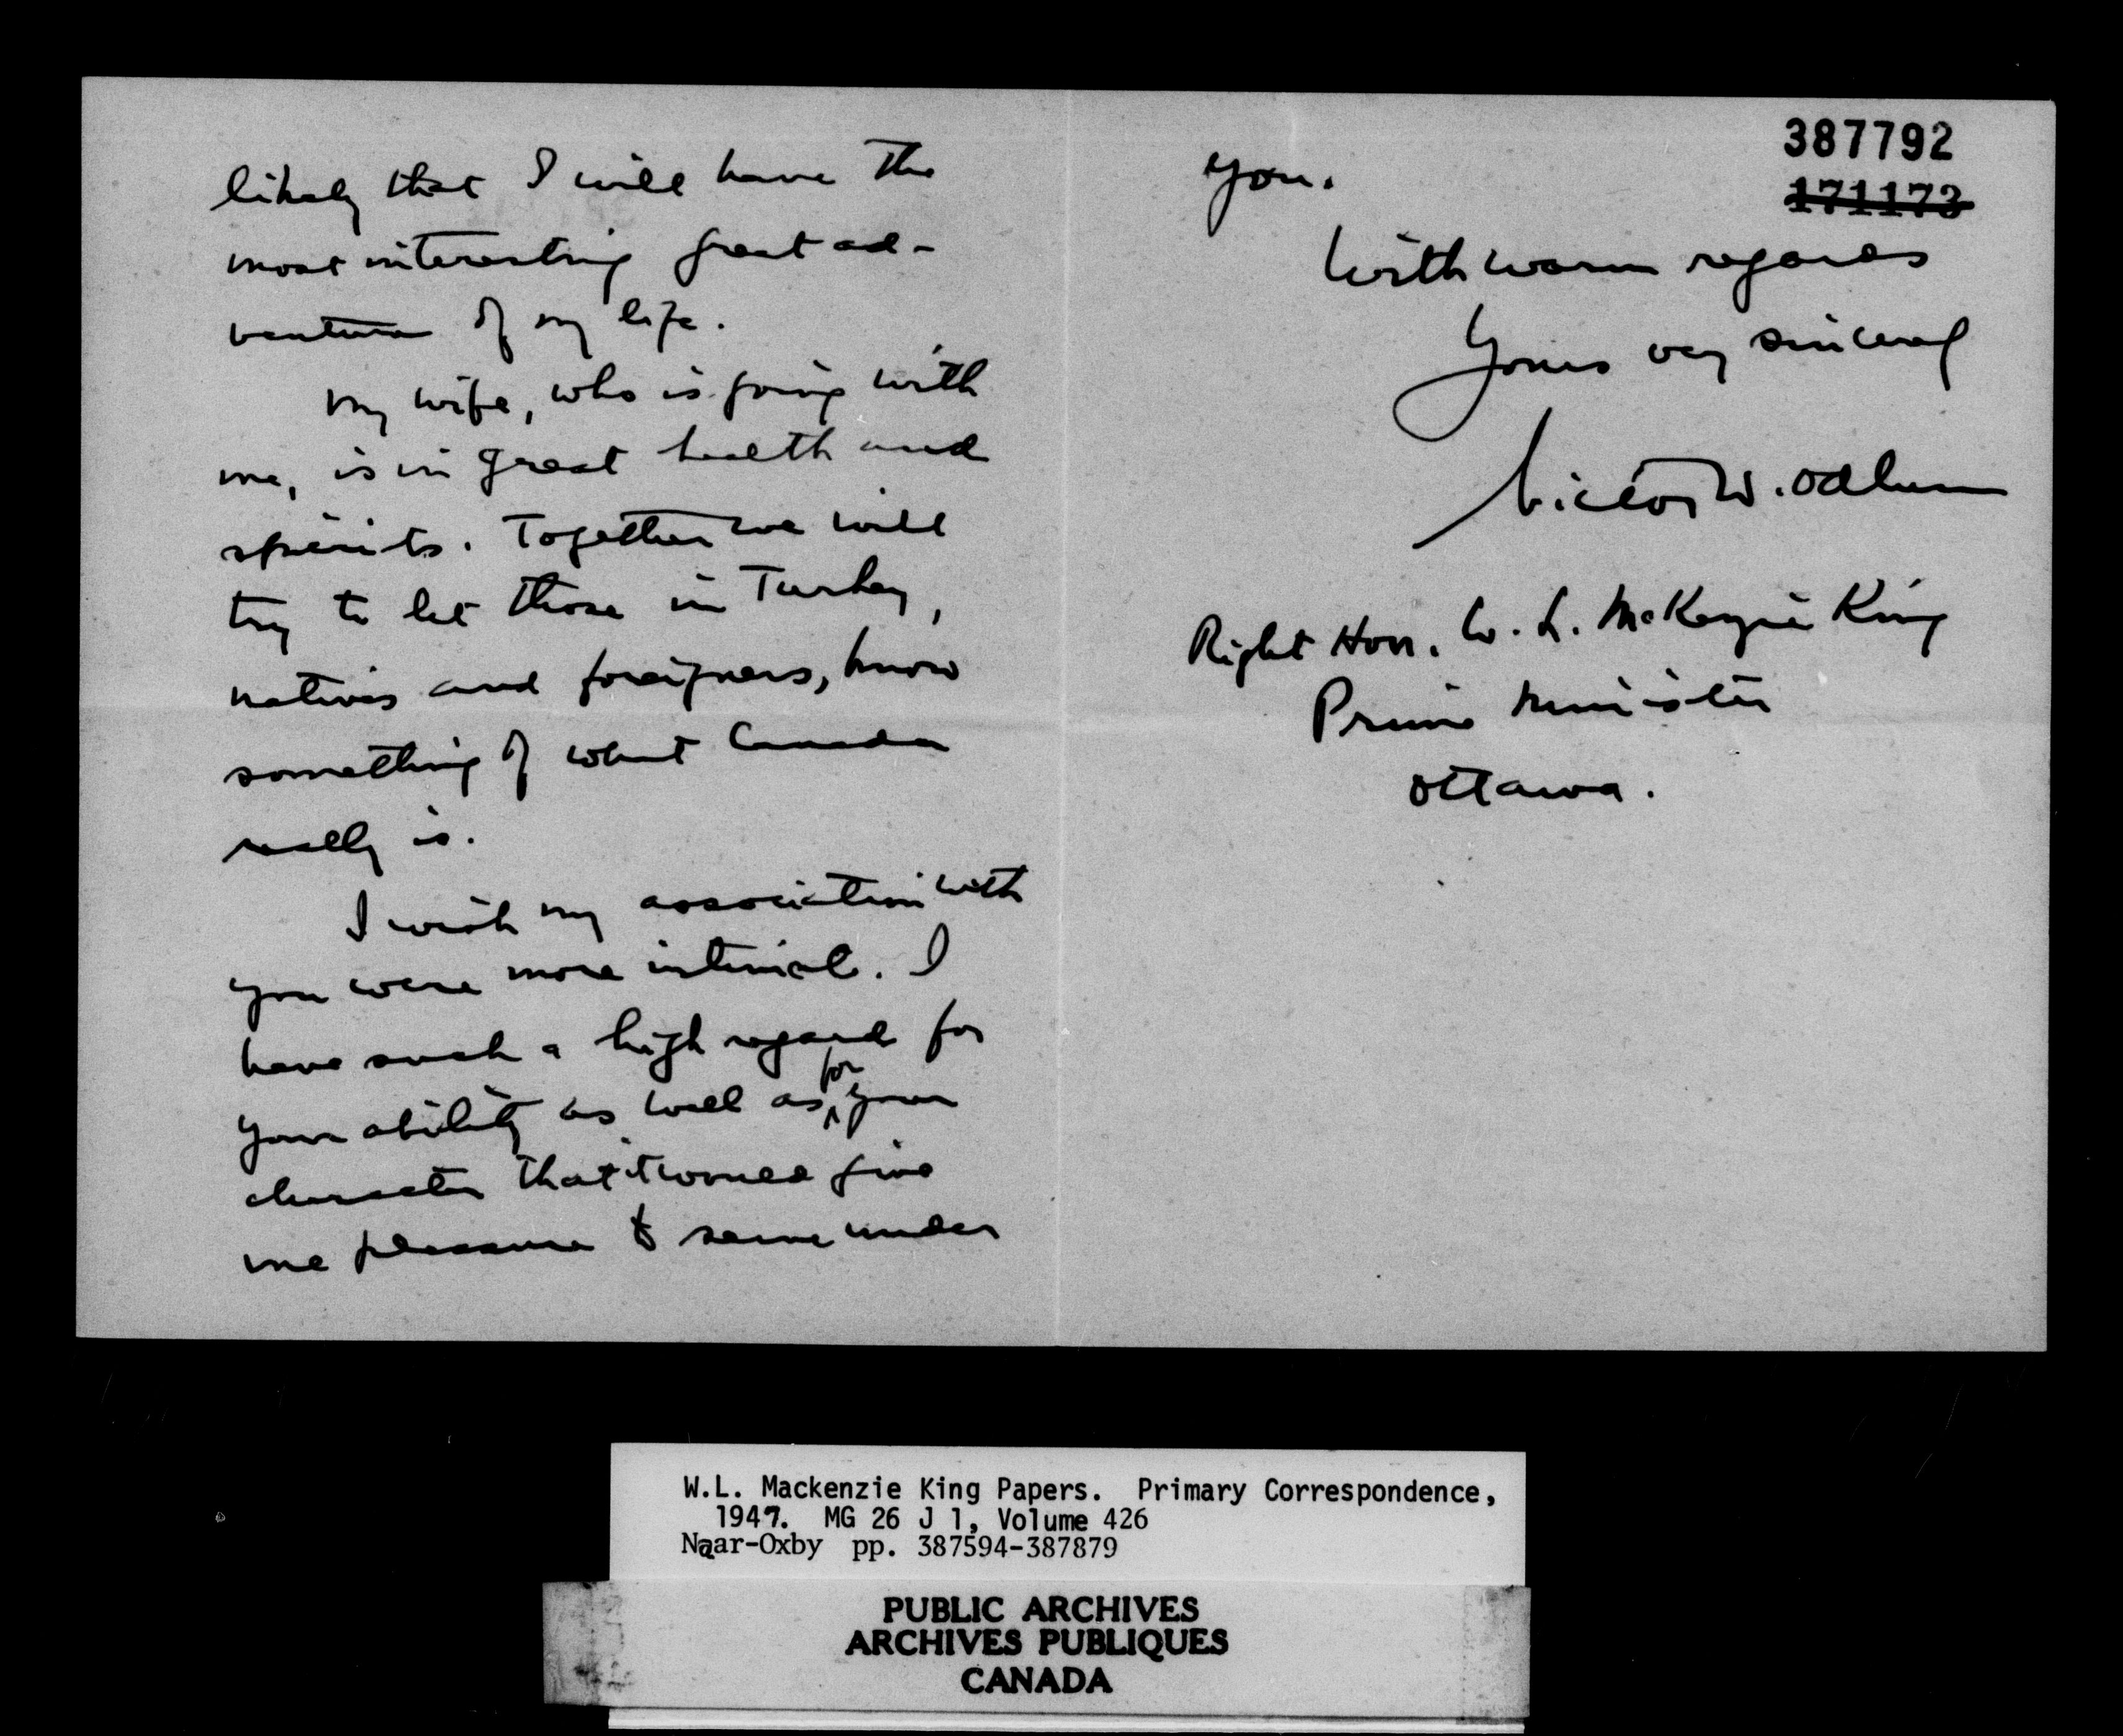 likely that I will have the
most interesting great ad-
venture of my life.
My wife, who is going with
me, is in great health and
spirits. Together we will
try to let those in Turkey,
natives and foreigners, know
something of what Canada
really is.
I wish my association with
you were more intimate. I
have such a high regard for
for
your ability as well as ^ your
character that it would give
me pleasure to serve under
387792
171173
you.
With warm regards
Yours very sincerely
Victor W. Odlum
Right Hon. W. L. McKenzie King
Prime Minister
Ottawa.
W.L. Mackenzie King Papers. Primary Correspondence,
1947. MG 26 J 1, Volume 426
Naar-Oxby pp. 387594-387879
PUBLIC ARCHIVES
ARCHIVES PUBLIQUES
CANADA